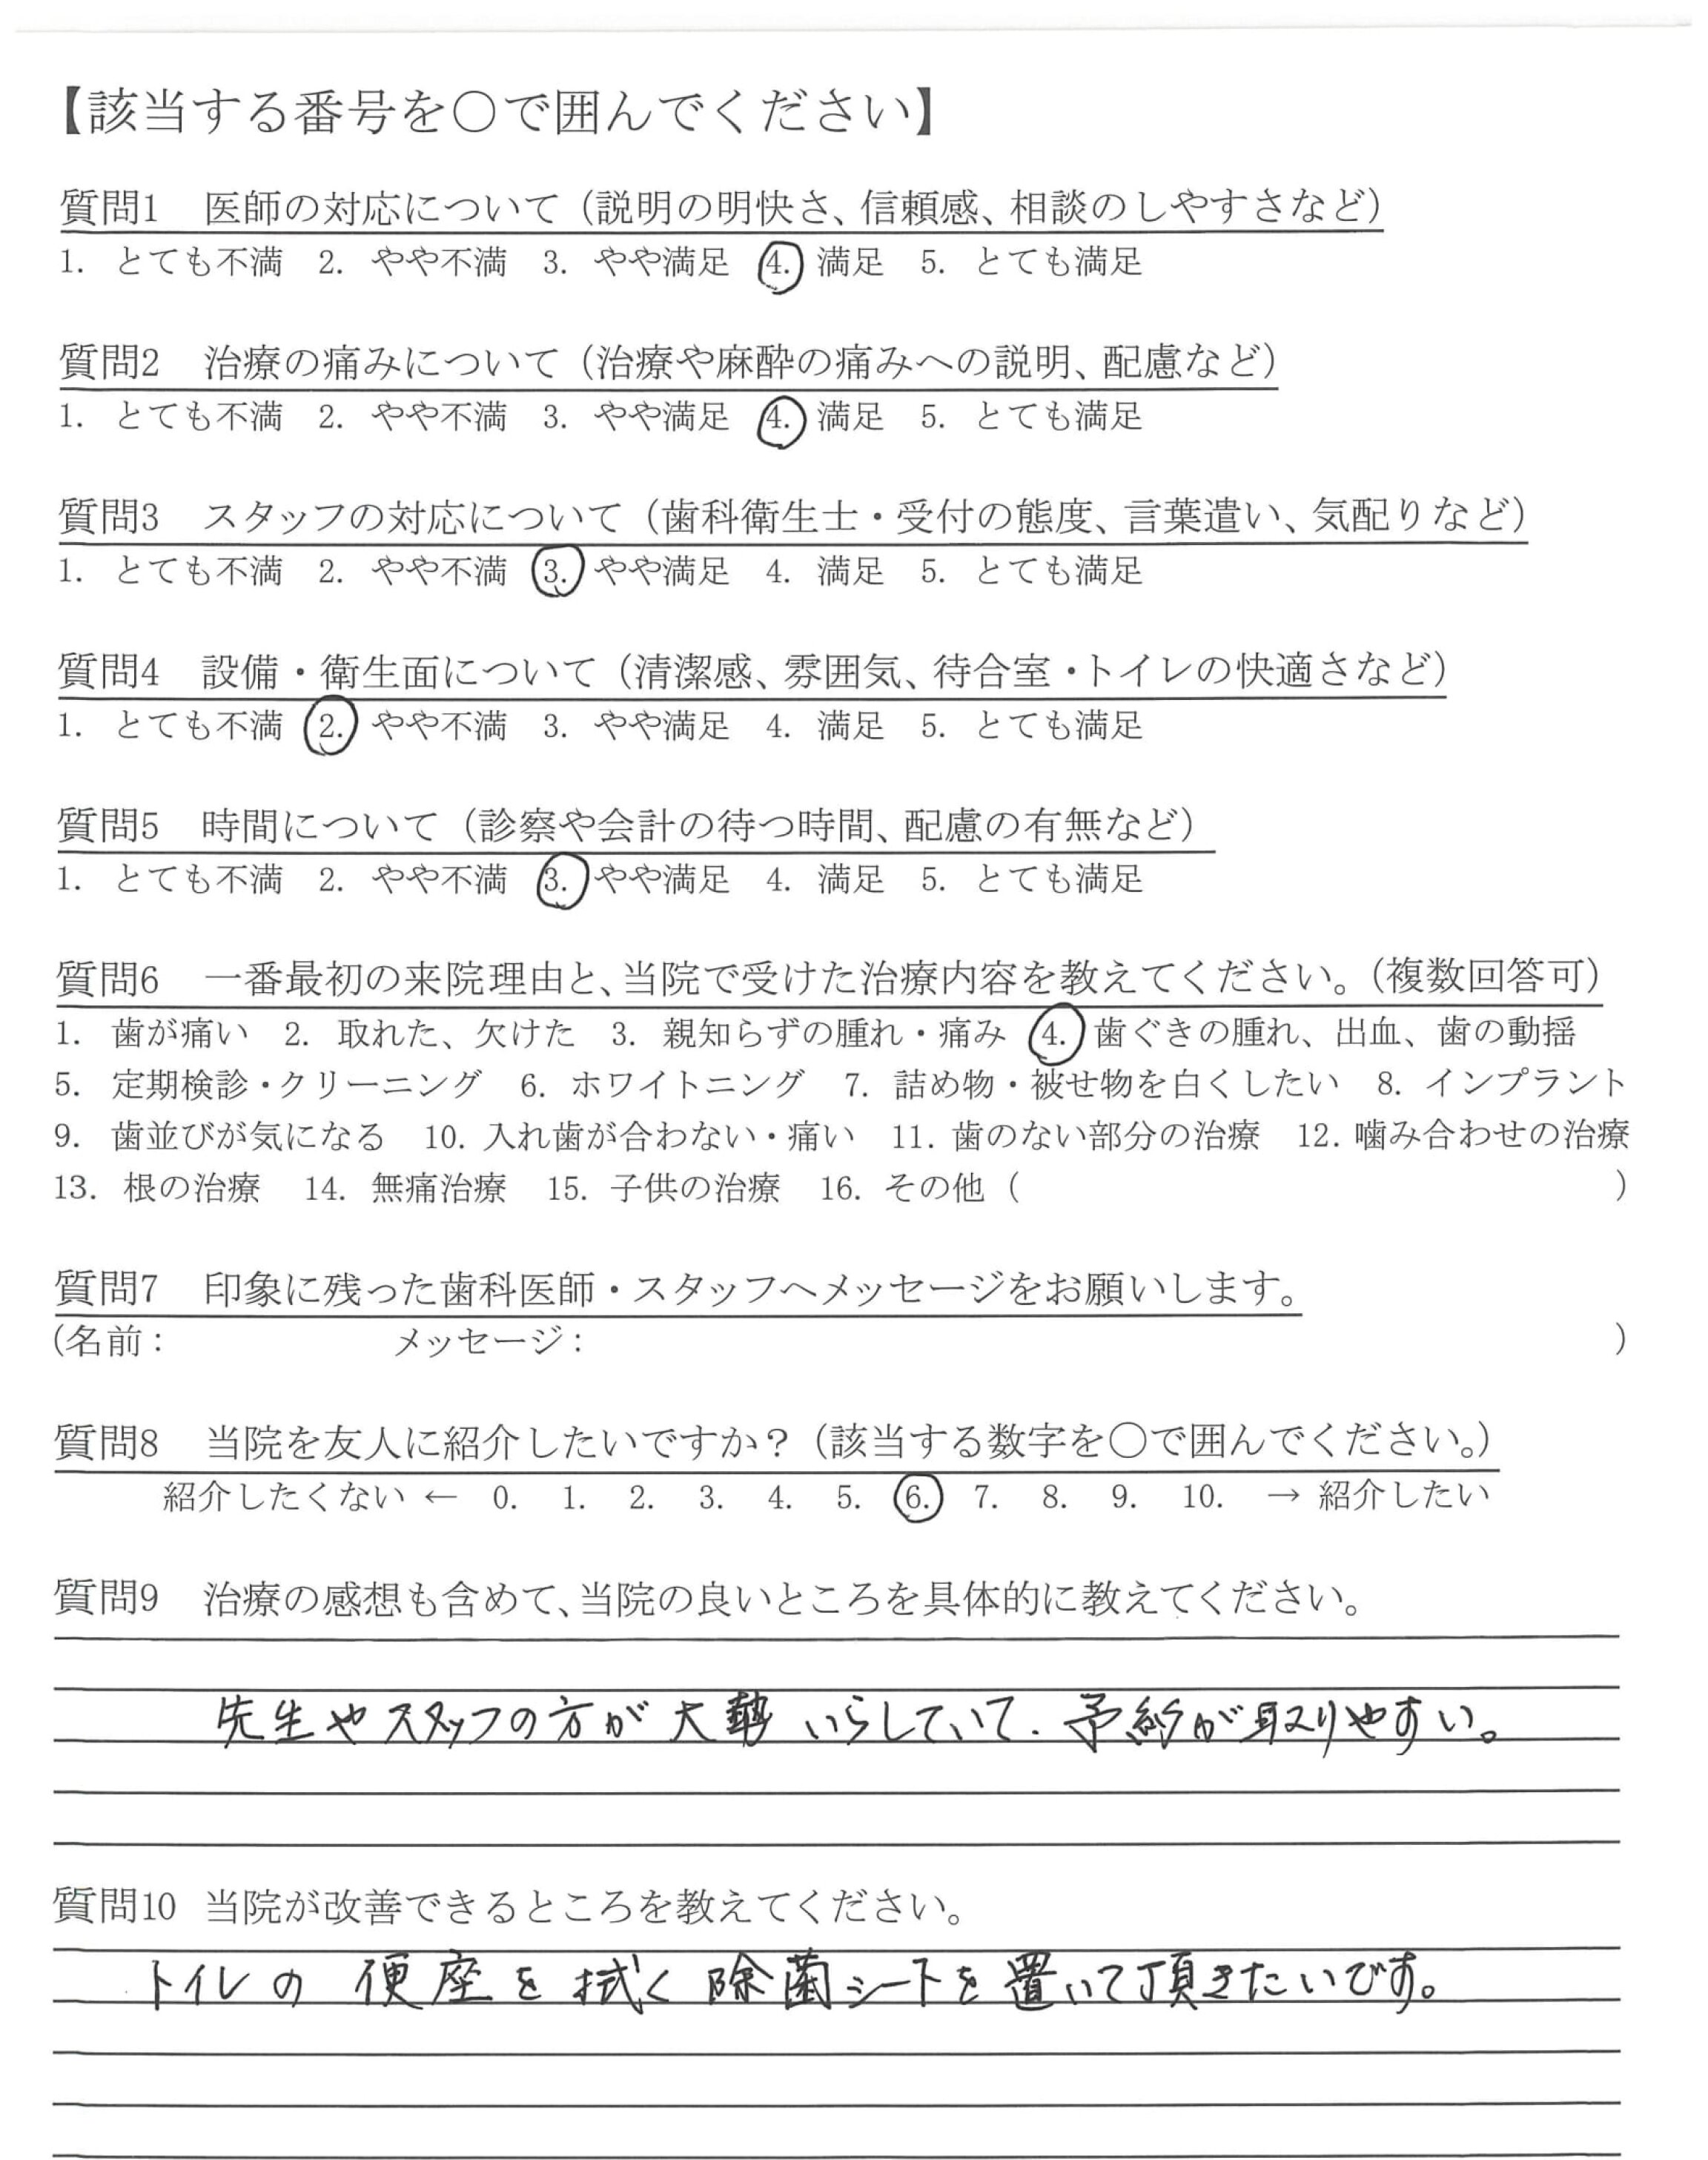 【該当する番号を〇で囲んでください】
質問1 医師の対応について（説明の明快さ、信頼感、相談のしやすさなど）
1. とても不満 2. やや不満 3. やや満足 4. 満足 5. とても満足
質問2 治療の痛みについて（治療や麻酔の痛みへの説明、配慮など）
1. とても不満 2. やや不満 3. やや満足 4. 満足 5. とても満足
質問3 スタッフの対応について（歯科衛生士・受付の態度、言葉遣い、気配りなど）
1. とても不満 2. やや不満 3. やや満足 4. 満足 5. とても満足
質問4 設備・衛生面について（清潔感、雰囲気、待合室・トイレの快適さなど）
1. とても不満 2. やや不満 3. やや満足 4. 満足 5. とても満足
質問5 時間について（診察や会計の待つ時間、配慮の有無など）
1. とても不満 2. やや不満 3. やや満足 4. 満足 5. とても満足
質問6 一番最初の来院理由と、当院で受けた治療内容を教えてください。（複数回答可）
1. 歯が痛い 2. 取れた、欠けた 3. 親知らずの腫れ・痛み 4. 歯ぐきの腫れ、出血、歯の動揺
5. 定期検診・クリーニング 6. ホワイトニング 7. 詰め物・被せ物を白くしたい 8. インプラント
9. 歯並びが気になる 10. 入れ歯が合わない・痛い 11. 歯のない部分の治療 12. 噛み合わせの治療
13. 根の治療 14. 無痛治療 15. 子供の治療 16. その他（ ）
質問7 印象に残った歯科医師・スタッフへメッセージをお願いします。
（名前： メッセージ： ）
質問8 当院を友人に紹介したいですか？（該当する数字を〇で囲んでください。）
紹介したくない ← 0. 1. 2. 3. 4. 5. 6. 7. 8. 9. 10. → 紹介したい
質問9 治療の感想も含めて、当院の良いところを具体的に教えてください。
先生やスタッフの方が大勢いらしていて、予約が取りやすい。
質問10 当院が改善できるところを教えてください。
トイレの便座を拭く除菌シートを置いて頂きたいです。